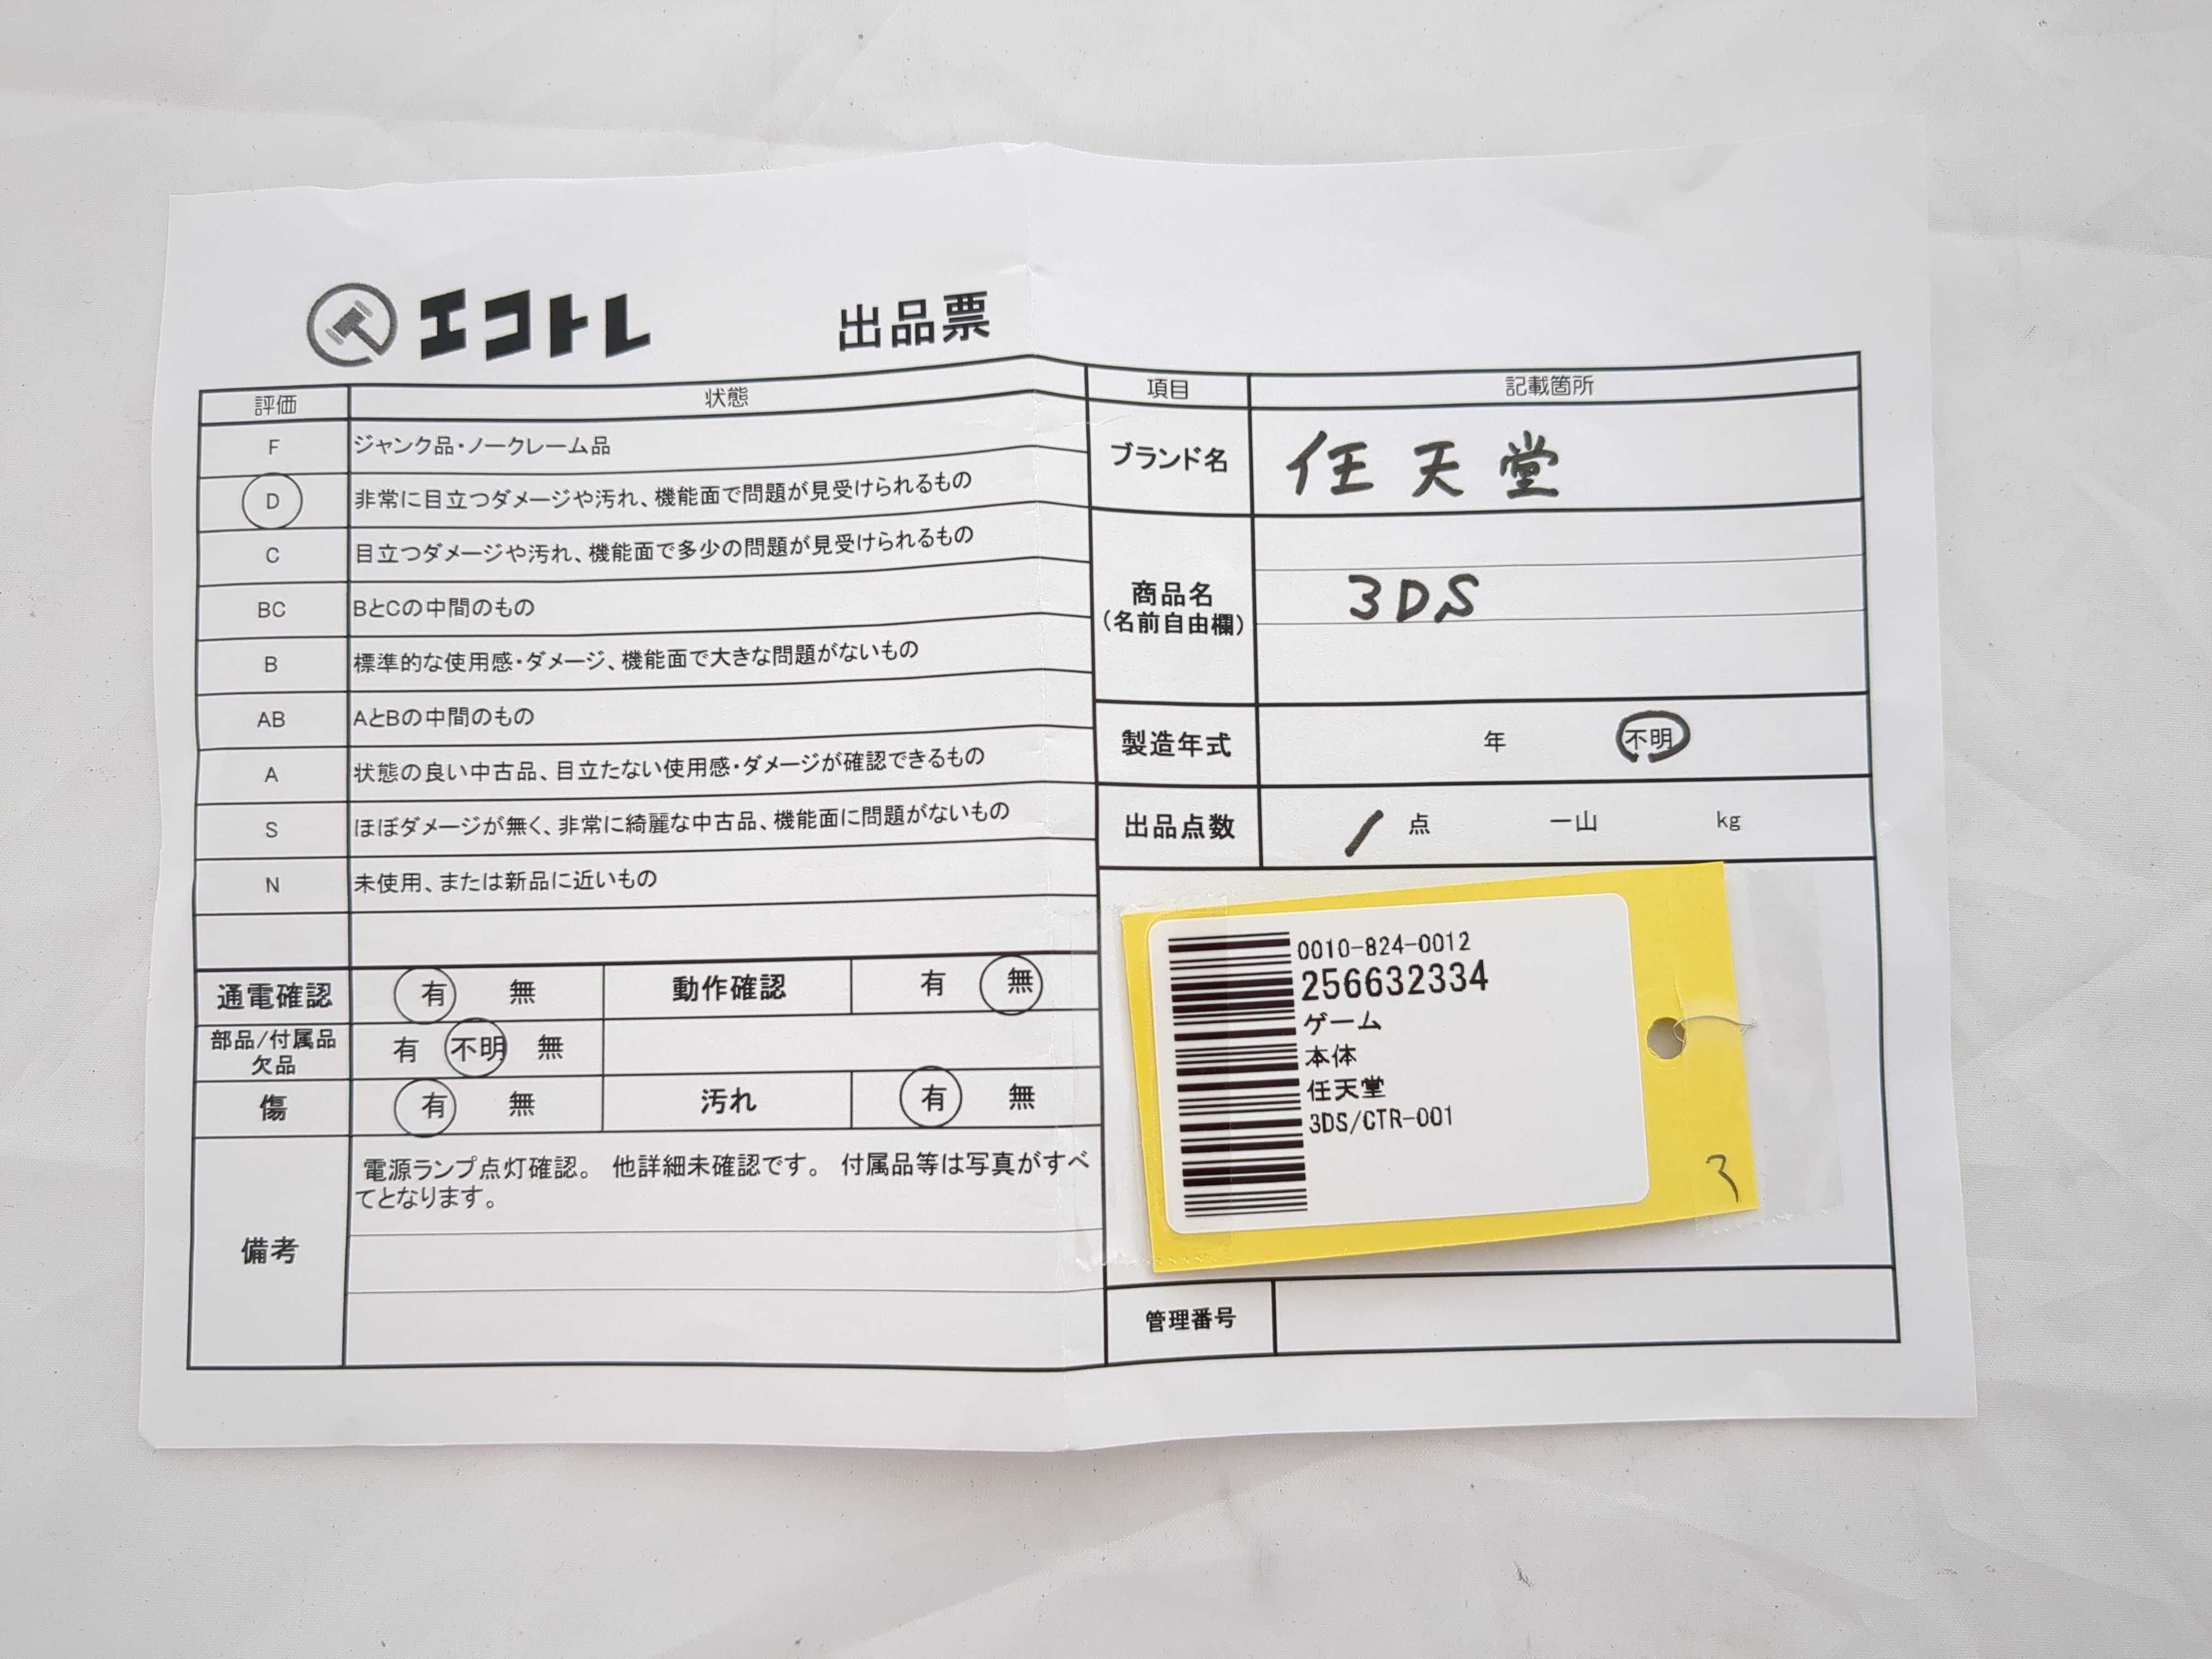 エコトレ 出品票
評価 状態
F ジャンク品・ノークレーム品
D 非常に目立つダメージや汚れ、機能面で問題が見受けられるもの
C 目立つダメージや汚れ、機能面で多少の問題が見受けられるもの
BC BとCの中間のもの
B 標準的な使用感・ダメージ、機能面で大きな問題がないもの
AB AとBの中間のもの
A 状態の良い中古品、目立たない使用感・ダメージが確認できるもの
S ほぼダメージが無く、非常に綺麗な中古品、機能面に問題がないもの
N 未使用、または新品に近いもの
通電確認 有 無 動作確認 有 無
部品/付属品
欠品 有 不明 無
傷 有 無 汚れ 有 無
備考
電源ランプ点灯確認。 他詳細未確認です。 付属品等は写真がすべ
てとなります。
項目 記載箇所
ブランド名 任天堂
商品名
(名前自由欄)
3DS
製造年式 年 不明
出品点数 1 点 一山 kg
0010-824-0012
256632334
ゲーム
本体
任天堂
3DS/CTR-001
3
管理番号